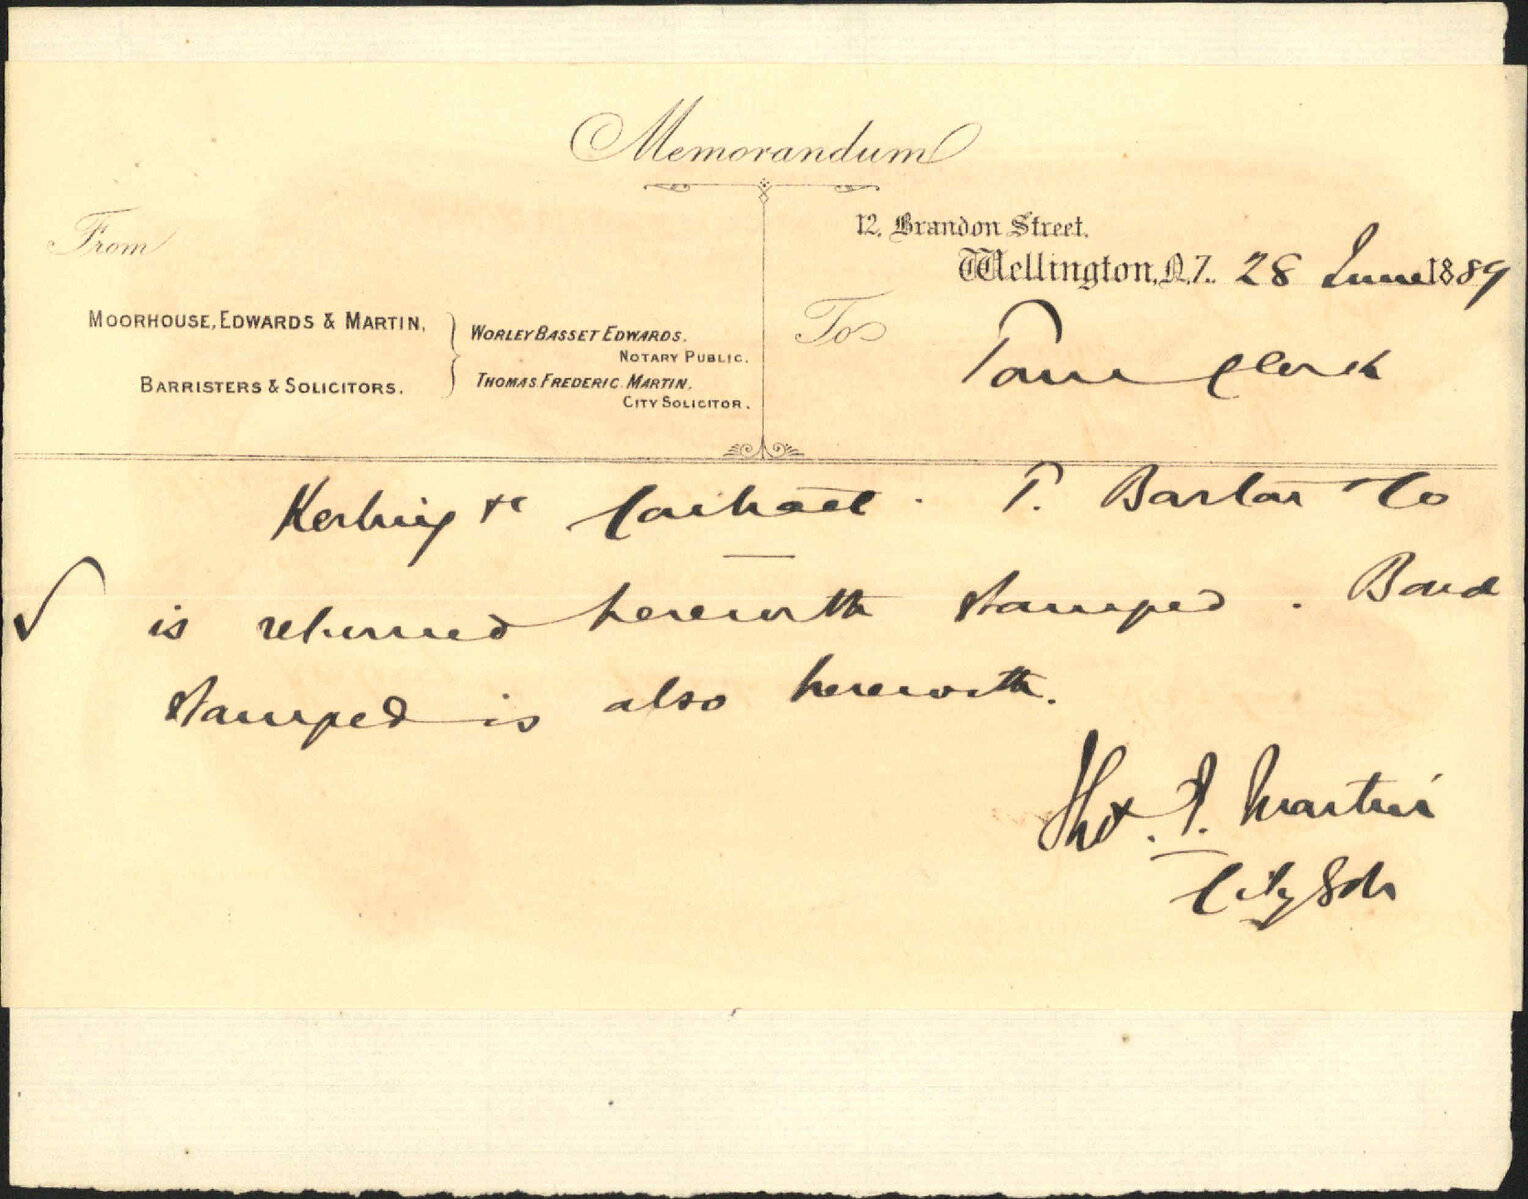 Memorandum
From
12, Brandon Street.
Wellington, N.Z. 28 June 1889
MOORHOUSE, EDWARDS & MARTIN,
BARRISTERS & SOLICITORS.
WORLEY BASSET EDWARDS.
NOTARY PUBLIC.
THOMAS FREDERIC MARTIN.
CITY SOLICITOR.
To
Town Clerk
Kerbing &c Contract. T. Co
is returned herewith stamped. Bond
stamped is also herewith.
Thos. F. Martin
City Solr